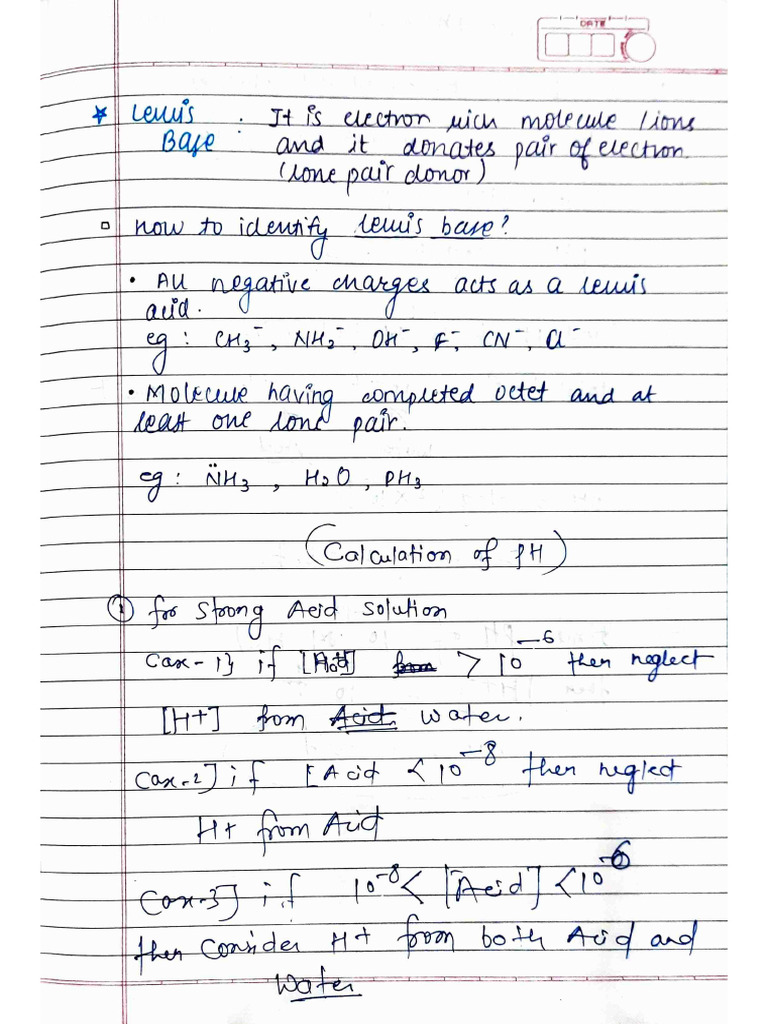 DATE
* Lewis : It is electron rich molecule / ions
Base and it donates pair of electron.
(lone pair donor)
□ How to identify lewis base?
• All negative charges acts as a lewis
acid.
eg : CH3⁻, NH2⁻, OH⁻, F⁻, CN⁻, Cl⁻
• Molecule having completed octet and at
least one lone pair.
eg : N̈H3 , H2O , PH3
(Calculation of pH)
① for Strong Acid Solution
Case-1} if [Acid] > 10⁻⁶ then neglect
[H+] from water.
Case-2] if [Acid < 10⁻⁸ then neglect
H+ from Acid
Case-3] if 10⁻⁸ < [Acid] < 10⁻⁶
then Consider H+ from both Acid and
Water